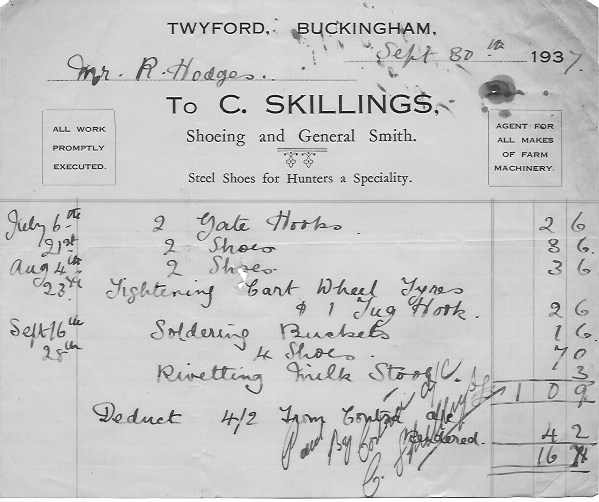 TWYFORD, BUCKINGHAM,
Sept 30th 1937.
Mr. R. Hodges.
To C. SKILLINGS,
Shoeing and General Smith.
Steel Shoes for Hunters a Speciality.
ALL WORK
PROMPTLY
EXECUTED.
AGENT FOR
ALL MAKES
OF FARM
MACHINERY.
July 6th 2 Gate Hooks. 2 6
21st 2 Shoes 3 6
Aug 4th 2 Shoes. 3 6
23rd Tightening Cart Wheel Tyres
& 1 Tug Hook. 2 6
Sept 16th Soldering Buckets 1 6
28th 4 Shoes. 7 0
Rivetting Milk Stool. 3
1 0 9
Deduct 4/2 From Contra a/c
Rendered. 4 2
16 7
Paid By Contra a/c
C. Skillings